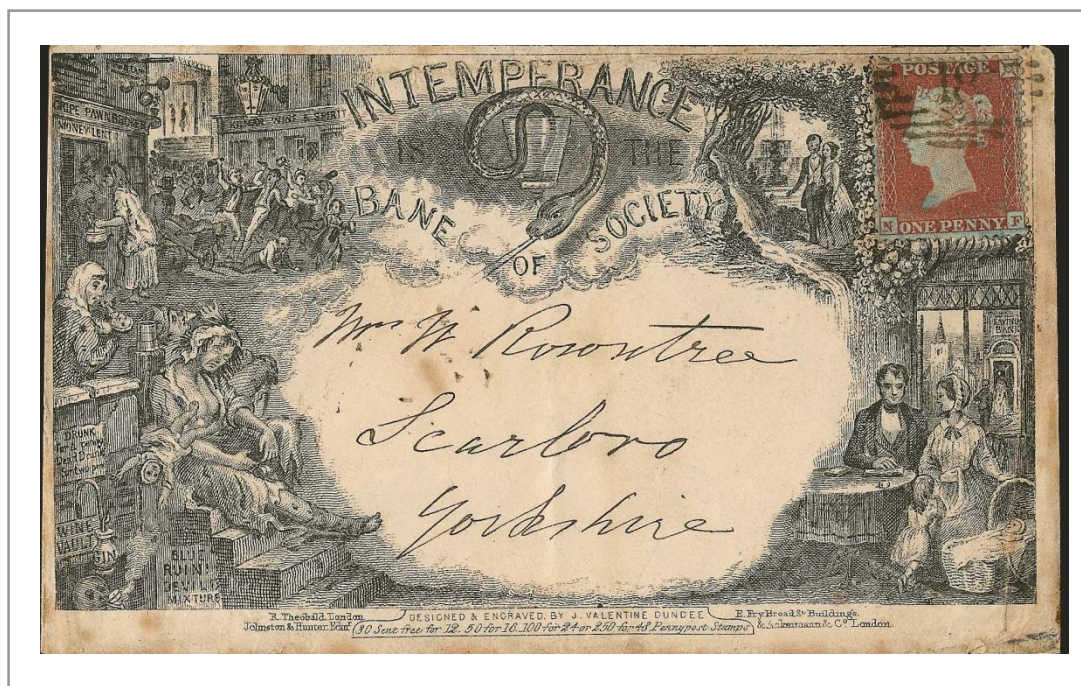 INTEMPERANCE
IS THE
BANE OF SOCIETY
POSTAGE
N ONE PENNY F
GRIPE PAWNBROKER
MONEY LENT
WINE & SPIRIT
SAVINGS BANK
Mrs W Rowntree
Scarbro
Yorkshire
DRUNK
for a penny
Dead Drunk
for two pence
WINE
VAULTS
GIN
BLUE
RUIN!
DEVIL'S
MIXTURE
R. Theobald, London
Johnston & Hunter, Edinr
DESIGNED & ENGRAVED, BY J. VALENTINE DUNDEE
30 Sent free for 12, 50 for 16, 100 for 24 or 250 for 48 Pennypost Stamps
E. Fry Broad St. Buildings.
& Ackermann & Co. London.